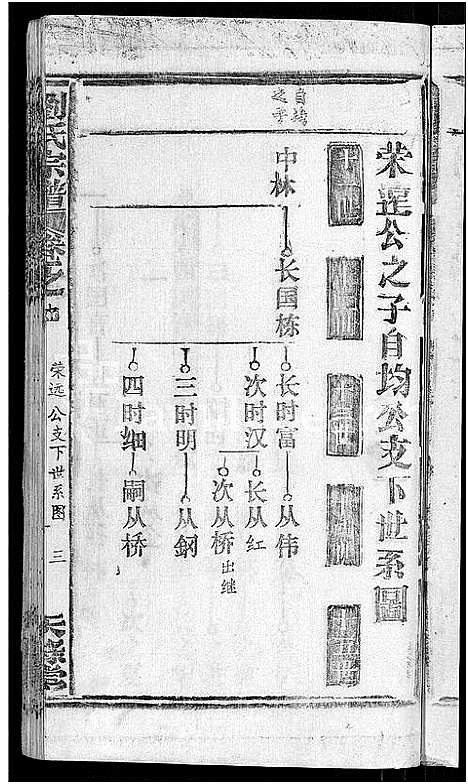 荣罡公之子自均公支下世系图
自均
之子
中林
长国栋
长时富
从伟
次时汉
长从红
次从桥出继
三时明
从鋼
四时细
嗣从桥
刘氏宗谱
荣远公支下世系图
三